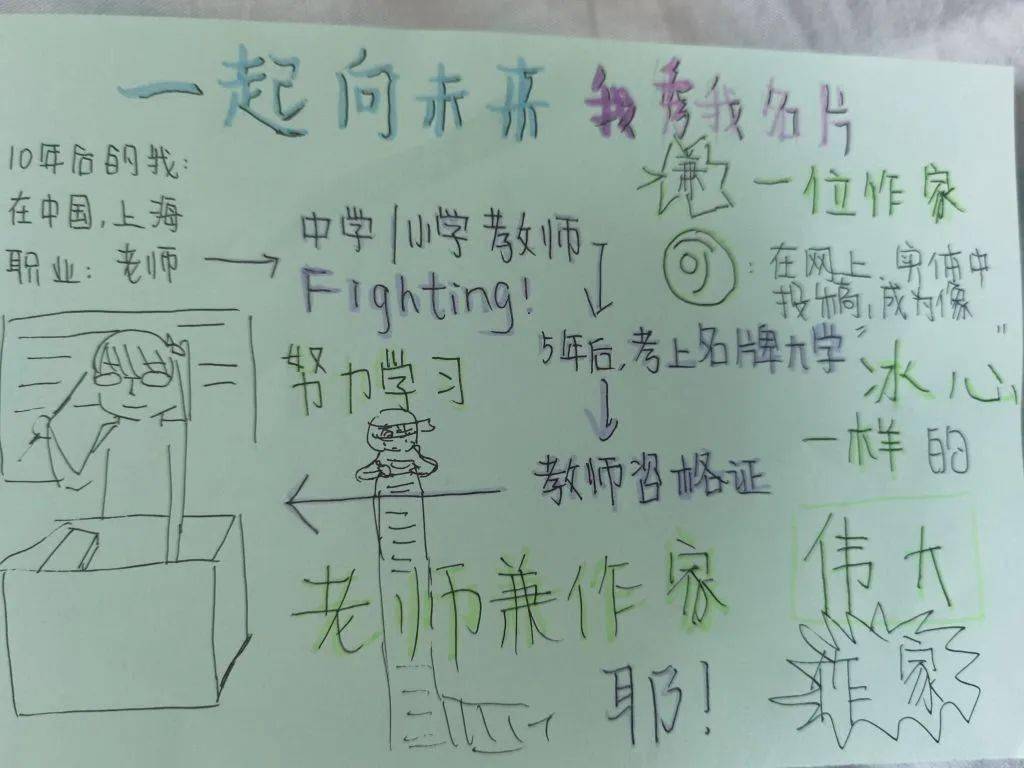 一起向未来 我秀我名片
10年后的我：
在中国，上海
职业：老师
中学/小学教师
Fighting!
5年后，考上名牌大学
教师咨格证
努力学习
兼
一位作家
可：在网上，实体中
投稿，成为像
"冰心"
一样的
伟大
作家
老师兼作家
耶！